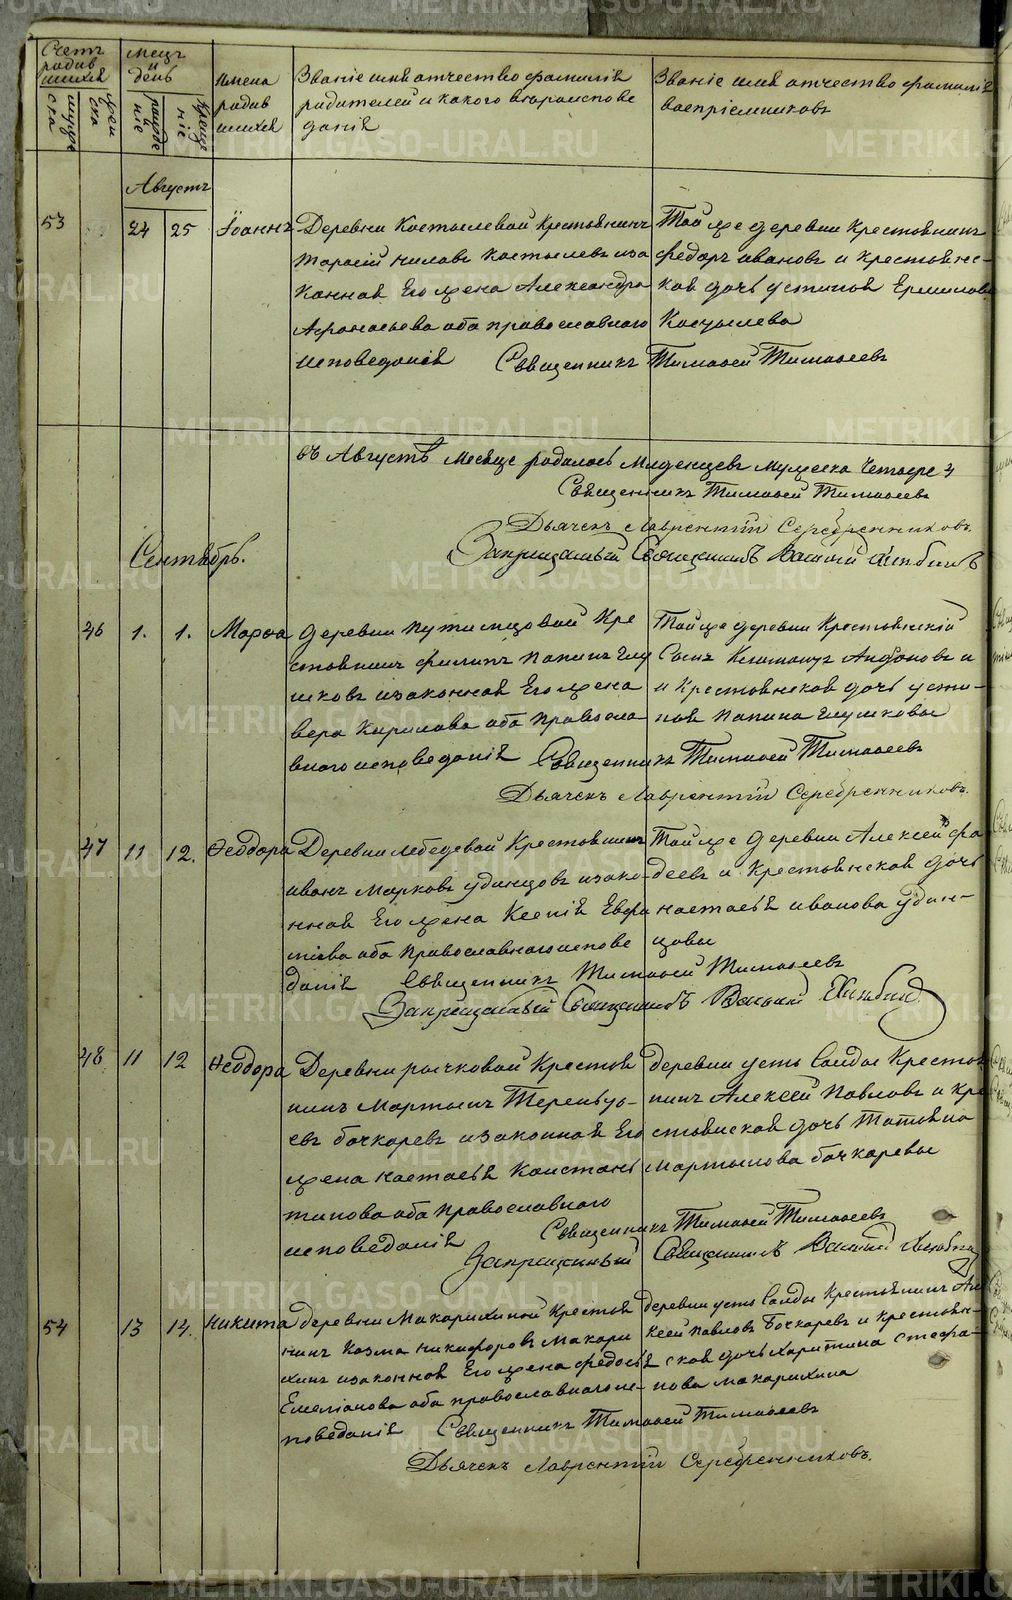 Счетъ родившихся
мужеска
женска
Месяцъ и день
рождение
крещение
Имена родившихся
Званіе имя отчество фамилія
родителей и какого вероисповеданія
Званіе имя отчество фамилія
воспріемниковъ
Августъ
53 24 25 Іоаннъ
Деревни Костылевой Крестьянинъ
Тарасій Ниловъ Костылевъ иза
конная Его жена Александра
Афанасьева оба православного
исповеданія
Той же деревни Крестьянинъ
Федоръ Ивановъ и крестьянс-
кая дочь Устинья Ермилова
Костылева
Священникъ Тимофей Тимофеевъ
въ Августе Месяце родилось Младенцевъ мужеска Четыре 4
Священникъ Тимофей Тимофеевъ
Дьячекъ Лаврентій Серебренниковъ
Запрещенный Священникъ Василій
Сентябрь.
46 1. 1. Марфа
деревни Путимцовой Кре
стьянинъ Филипъ Папинъ Глу
шковъ изаконная Его жена
Вера Кирилова оба правосла
вного исповеданія
Той же деревни Крестьянскій
Сынъ Антоновъ и
и Крестьянская дочь Усти-
нья Папина Глушковы
Священникъ Тимофей Тимофеевъ
Дьячекъ Лаврентій Серебренниковъ.
47 11 12. Феодора
Деревни Лебедевой Крестьянинъ
Иванъ Марковъ Удинцовъ изако-
нная Его жена Ксенія Евфра
оба православного испове
данія
Той же деревни Алексей Фа
деевъ и Крестьянская дочь
настасья Иванова Удин-
цовы
Священникъ Тимофей Тимофеевъ
Запрещенный Священникъ Василій
48 11 12 Феодора
Деревни Рычковой Крестья
нинъ Мартынъ Терентье-
евъ Бочкаревъ изаконная Его
жена Настасья Констань
тинова оба православного
исповеданія
деревни усть Салды Крестья
нинъ Алексей Павловъ и Кре
стьянская дочь Татьяна
Мартынова Бочкаревы
Священникъ Тимофей Тимофеевъ
Запрещенный Священникъ Василій
54 13 14. Никита
деревни Макарихиной Крестья
нинъ Козма Никифоровъ Макари
хинъ изаконная Его жена Федосья
Емеліанова оба православного ис-
поведанія
деревни усть Салды Крестьянинъ Але
ксей Павловъ Бочкаревъ и крестьян-
ская дочь Харитина Стефа-
нова Макарихина
Священникъ Тимофей Тимофеевъ
Дьячекъ Лаврентій Серебренниковъ.
METRIKI.GASO-URAL.RU